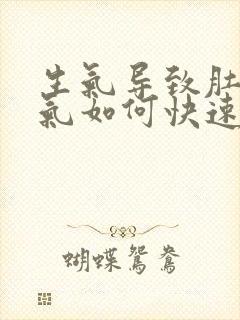 生氣导致肚
氣如何快速
蝴蝶鴛鴦